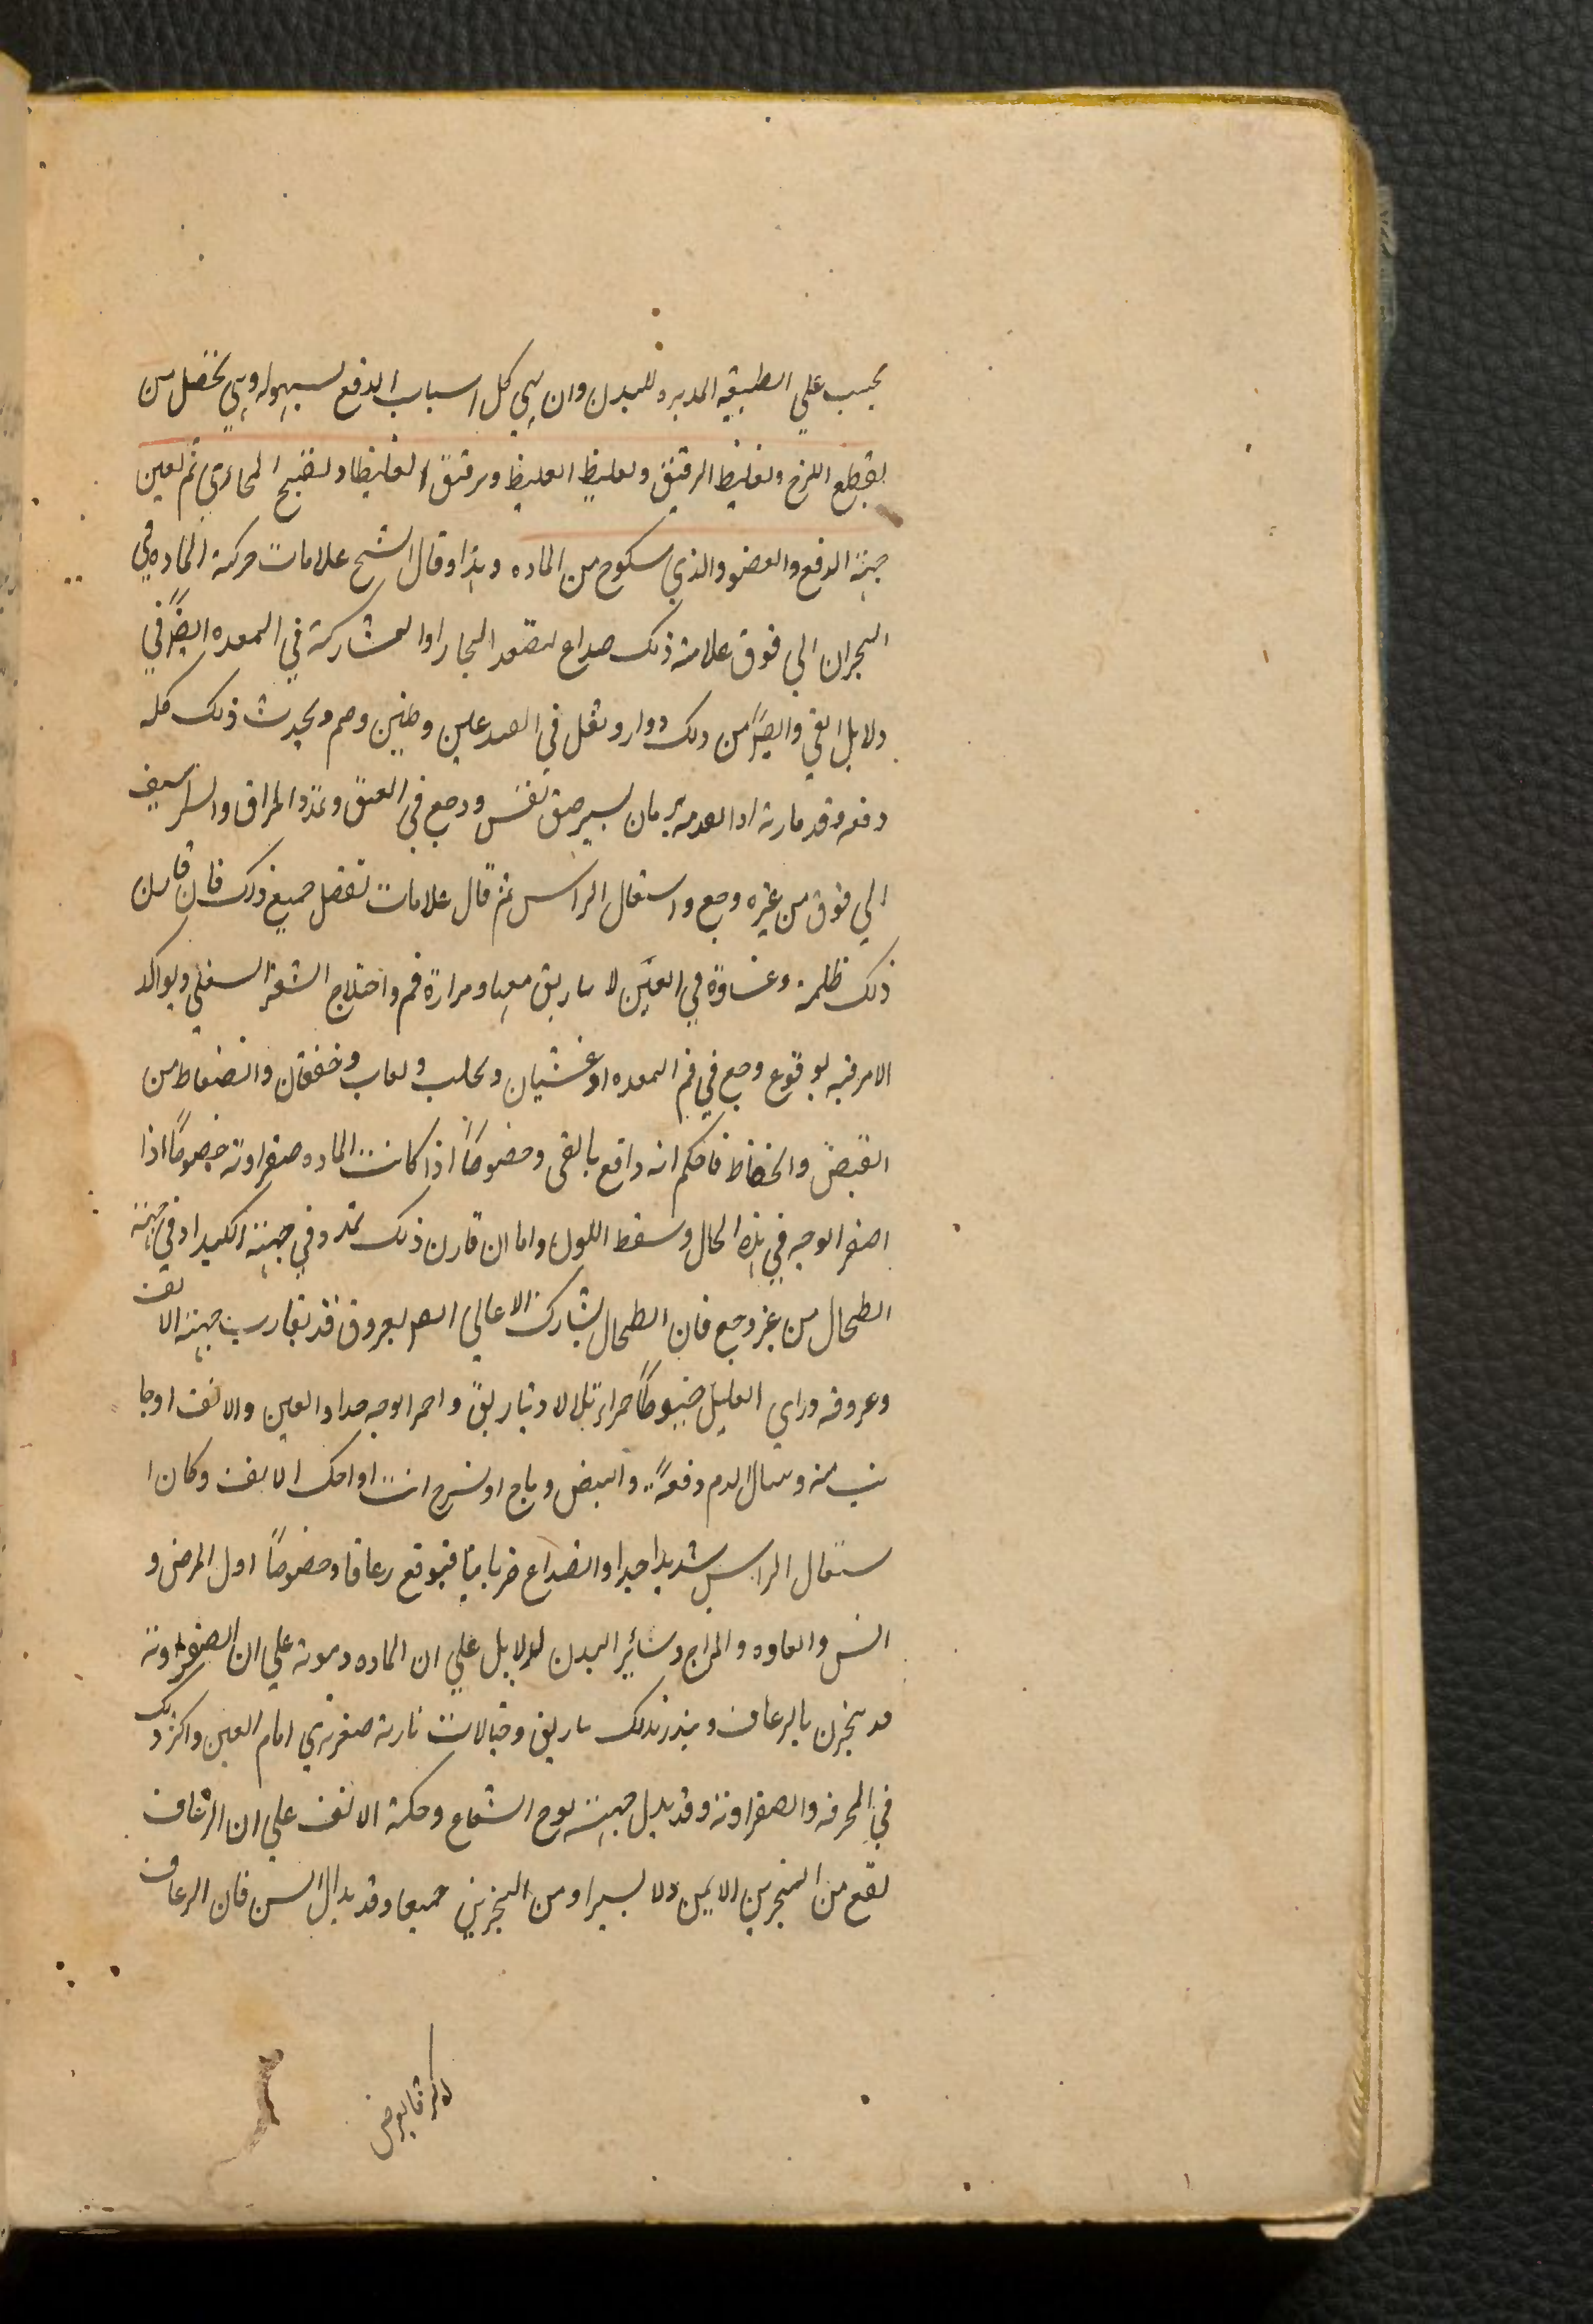 يجب علي الطبيعه المدبره للبدن وان يهي كل اسباب الدفع لسهوله وهي تحصل من
تقطع اللزج وتغليظ الرقيق وتغليظ الغليظ وترقيق الغليظا وتفتيح المجاري ثم تعين
جهة الدفع والعضو والذي من الماده وهذا وقال الشيخ علامات حركة الماده في
البحران الي فوق علامة ذلك صداع لتصعد البخار او المشاركة في المعده ايضاً في
دلايل القي وايضاً من ذلك دوار وثقل في الصدغين وطنين وصم ويحدث ذلك كله
دفعه وقد قارنه بزمان يسير ضيق نفس ووجع في العنق وتمدد المراق والشراسيف
الي فوق من غيره وجع واشتعال الراس ثم قال علامات تفصل جميع ذلك فان قارن
ذلك ظلمة وغشاوة في العين لا تباريق معها ومرارة فم واختلاج الشفة السفلي ويواكد
الامر فيه بوقوع وجع في فم المعده او غشيان وتحلب ولعاب وخفقان وانضغاط من
النبض وانخفاظ فاحكم انه واقع بالقى وخصوصاً اذا كانت الماده صفراوية خصوصاً اذا
اصفر الوجه في هذه الحال وسقط اللون واما ان قارن ذلك تمدد في جهة الكبد او في جهة
الطحال من غير وجع فان الطحال يشارك الاعالي العروق قد تقارب جهة الانف
وعروقه وراي العليل خيوطاً حمراء تلالا وتباريق واحمر الوجه جدا والعين والانف اوجا
نب منه وسال الدم دفعةً والنبض وماج او اسرع انت او احك الانف وكان ا
شتعال الراس شديدا جدا والصداع ضربا بيا فتوقع رعافا وخصوصاً اول المرض و
السن والعاده والمزاج وسائر البدن لدلايل علي ان الماده دموية علي ان الصفراوية
قد يبحرن بالرعاف وينذر بذلك تباريق وخيالات نارية صفر تري امام العين واكثر ذلك
في المحرقه والصفراوية وقد يدل جهة لوح الشعاع وحكة الانف علي ان الرعاف
يقع من المنخرين الايمن والايسر او من المنخرين جميعا وقد يدل السن فان الرعاف